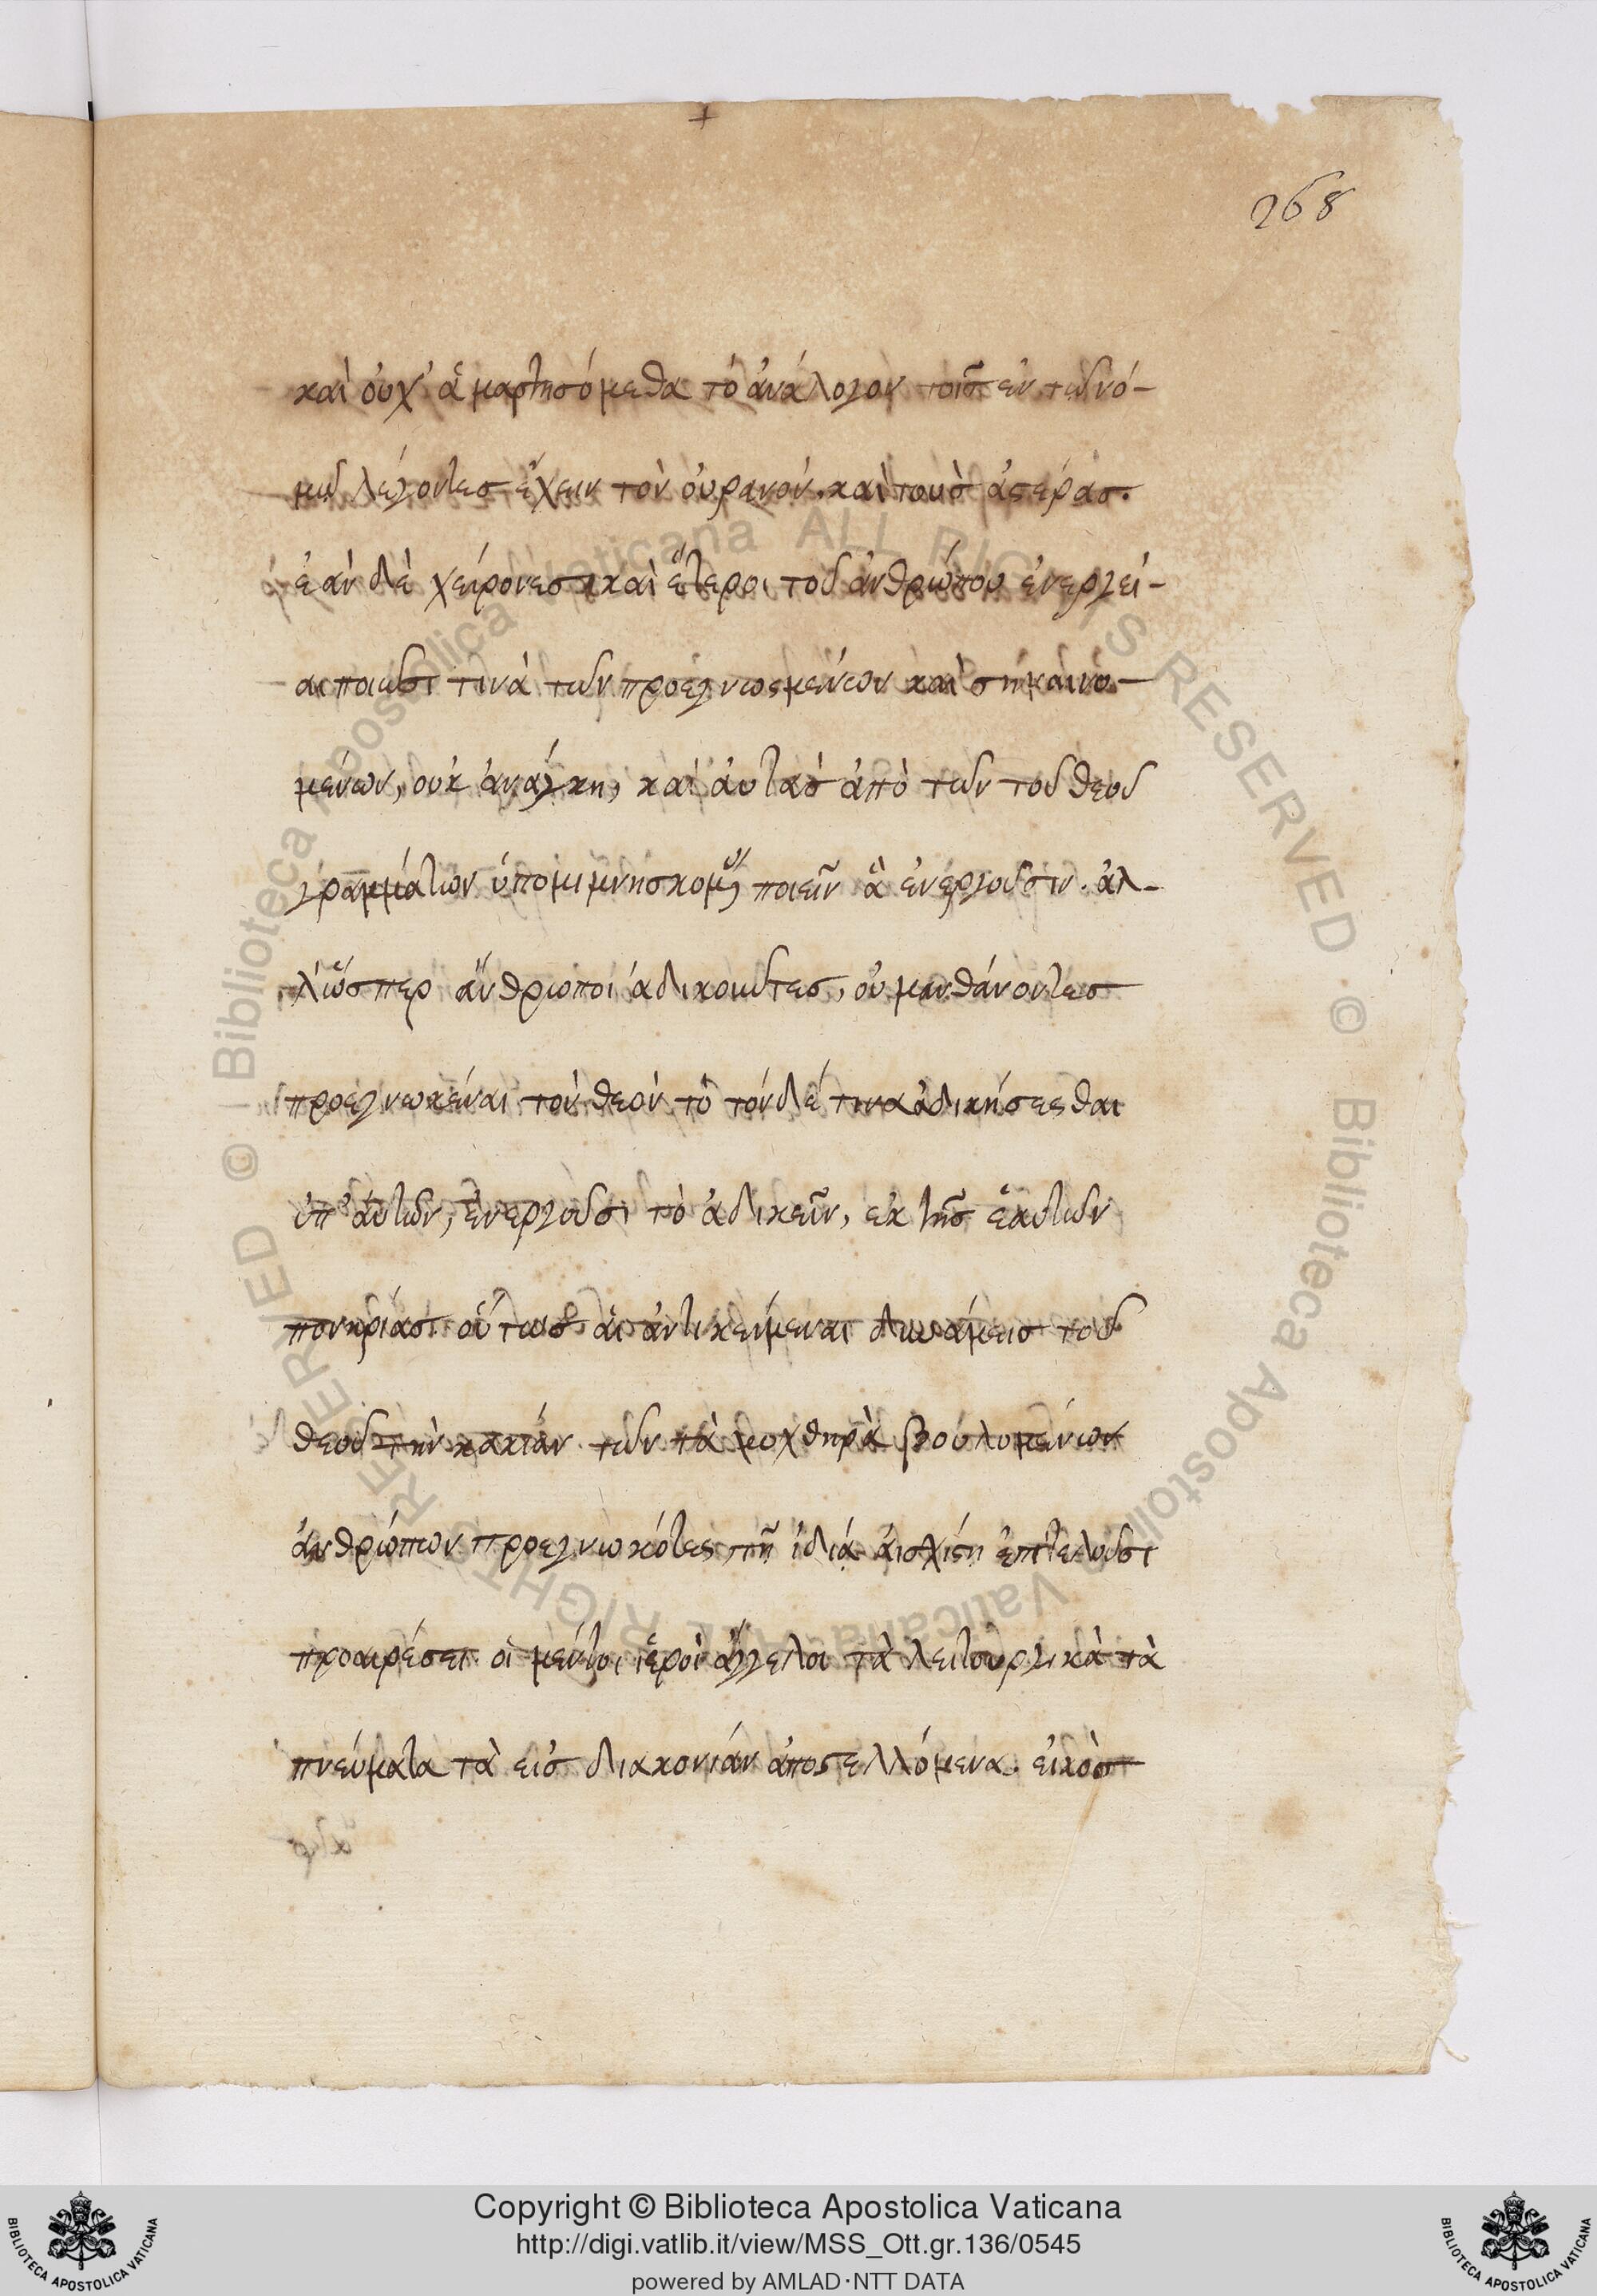 268
καὶ οὐχ' ἁμαρτησόμεθα τὸ ἀνάλογον τοῖς ἐν τῶ νό-
μω λέγοντες ἔχειν τὸν οὐρανόν. καὶ τοὺς ἀστέρας.
ἐὰν δὲ χείρονες καὶ ἕτεροι τοῦ ἀνθρώπου ἐνεργεί-
αι ποιῶσι τινὰ τῶν προεγνωσμένων καὶ σημαινο-
μένων, οὐκ ἀνάγκη, καὶ αὐτὰς ἀπὸ τῶν τοῦ θεοῦ
γραμμάτων ὑπομιμνησκομ ποιεῖν ἃ ἐνεργοῦσιν. ἀλ-
λ' ὥσπερ ἄνθρωποι ἀδικοῦντες, οὐ μανθάνοντες
προεγνωκέναι τὸν θεὸν τὸ τόνδέ τινα ἀδικήσεσθαι
ὑπ' αὐτῶν, ἐνεργοῦσι τὸ ἀδικεῖν, ἐκ τῆς ἑαυτῶν
πονηρίας. οὕτως αἱ ἀντικείμεναι δυνάμεις τοῦ
θεοῦ τὴν κακίαν τῶν τὰ μοχθηρὰ βουλομένων
ἀνθρώπων προεγνωκότες τῆ ἰδία αἰσχίστη ἐπιτελοῦσι
προαιρέσει. οἱ μέντοι ἱεροὶ ἄγγελοι τὰ λειτουργικὰ τὰ
πνεύματα τὰ εἰς διακονίαν ἀποστελλόμενα. εἰκὸς
Copyright © Biblioteca Apostolica Vaticana
http://digi.vatlib.it/view/MSS_Ott.gr.136/0545
powered by AMLAD·NTT DATA